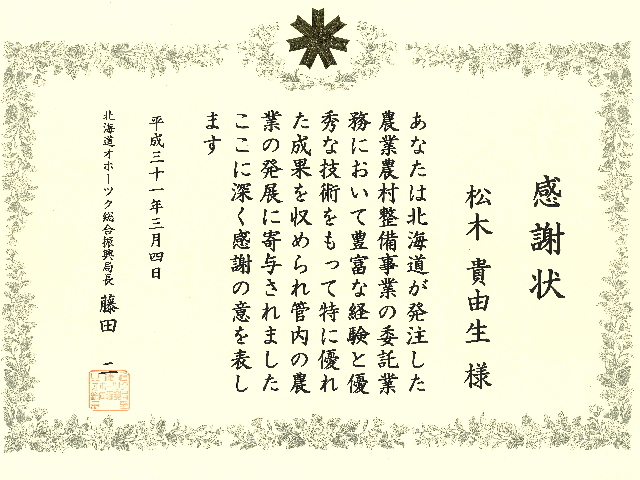 感謝状
松木 貴由生 様
あなたは北海道が発注した
農業農村整備事業の委託業
務において豊富な経験と優
秀な技術をもって特に優れ
た成果を収められ管内の農
業の発展に寄与されました
ここに深く感謝の意を表し
ます
平成三十一年三月四日
北海道オホーツク総合振興局長 藤田 二